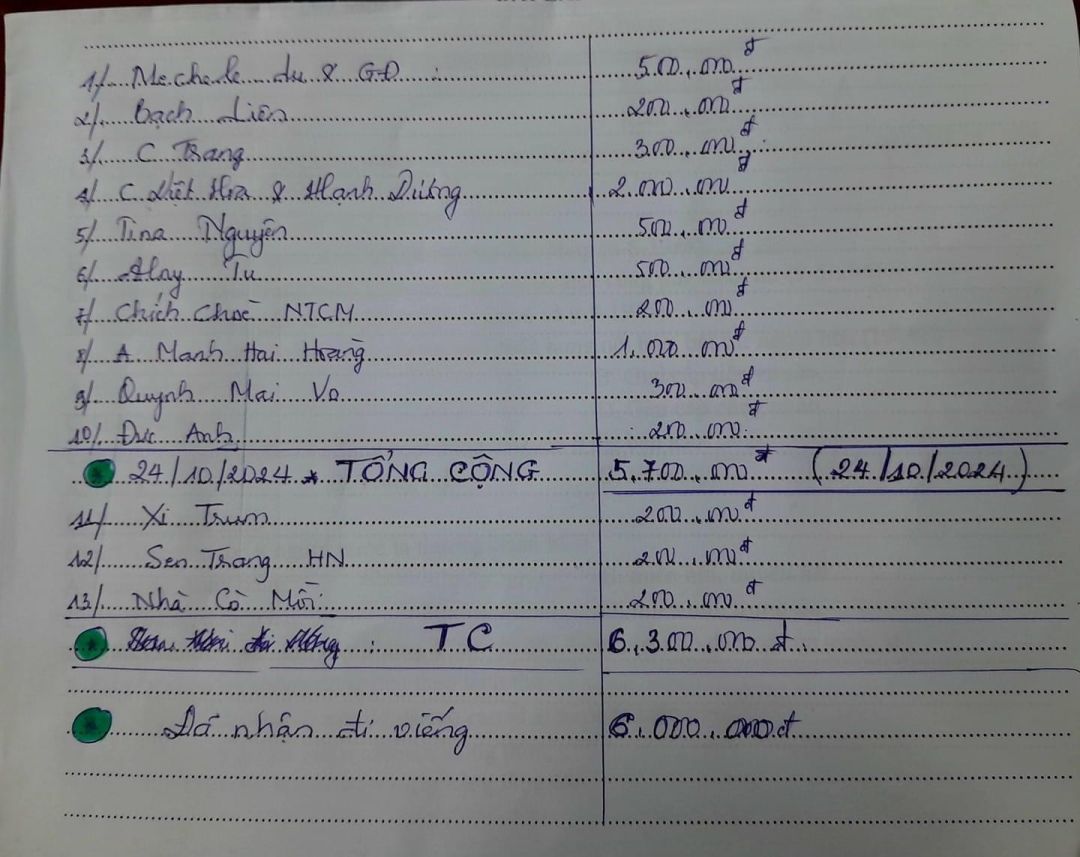 1/ Mechele du & GĐ : 500.000đ
2/ Bạch Liên 200.000đ
3/ C Trang 300.000đ
4/ C Việt Hoa & Hạnh Dương 2.000.000đ
5/ Tina Nguyên 500.000đ
6/ Tu 500.000đ
7/ Chích Choè NTCM 200.000đ
8/ A Manh Hai Hoàng 1.000.000đ
9/ Quynh Mai Vo 300.000đ
10/ Đức Anh 200.000đ
24/10/2024 * TỔNG CỘNG 5.700.000đ (24/10/2024)
11/ Xi Trum 200.000đ
12/ Sen Trang HN 200.000đ
13/ Nhà Cò Mồi: 200.000đ
: TC 6.300.000đ
Đã nhận đi viếng 6.000.000đ